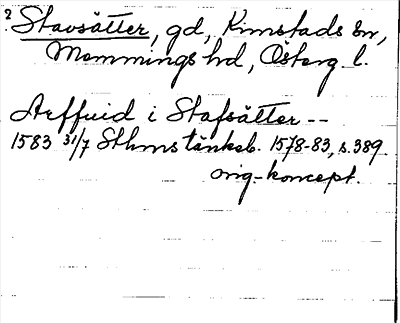 2 Stavsätter, gd, Kimstads sn,
Memmings hd, Österg. l.
Arffuid i Stafsätter --
1583 31/7 Sthms tänkeb. 1578-83, s. 389
orig.-koncept.